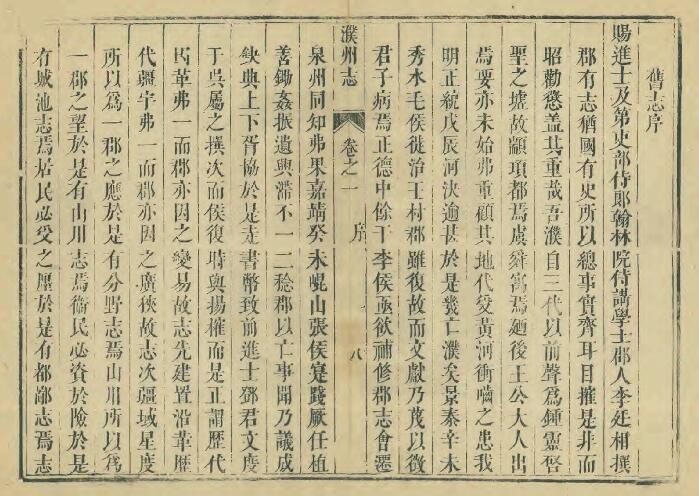 舊志序
賜進士及第吏部侍郎翰林院侍講學士郡人李廷相撰
郡有志猶國有史所以總事實齊耳目摧是非而
昭勸懲盖其重哉吾濮自三代以前聲為鍾靈啓
聖之墟故顓頊都焉虞舜寓焉廻後王公大人出
焉要亦未始弗重顧其地代受黃河衝嚙之患我
明正統戊辰河決逾甚於是幾亡濮矣景泰辛未
秀水毛侯徙治王村郡雖復故而文獻乃茂以徵
君子病焉正德中餘干李侯亟欲補修郡志會遷
濮州志
卷之一
序
八
泉州同知弗果嘉靖癸未崐山張侯寔踐厥任植
善鋤姦振遺興滯不一二稔郡以亡事聞乃議咸
缺典上下胥協於是走書幣致前進士鄧君文度
于吳屬之撰次而侯復時與揚搉而是正謂歷代
因革弗一而郡亦因之變易故志先建置沿革歷
代疆宇弗一而郡亦因之廣狹故志次疆域星度
所以為一郡之應於是有分野志焉山川所以為
一郡之望於是有山川志焉衞民必資於險於是
有城池志焉居民必受之廛於是有都鄙志焉志